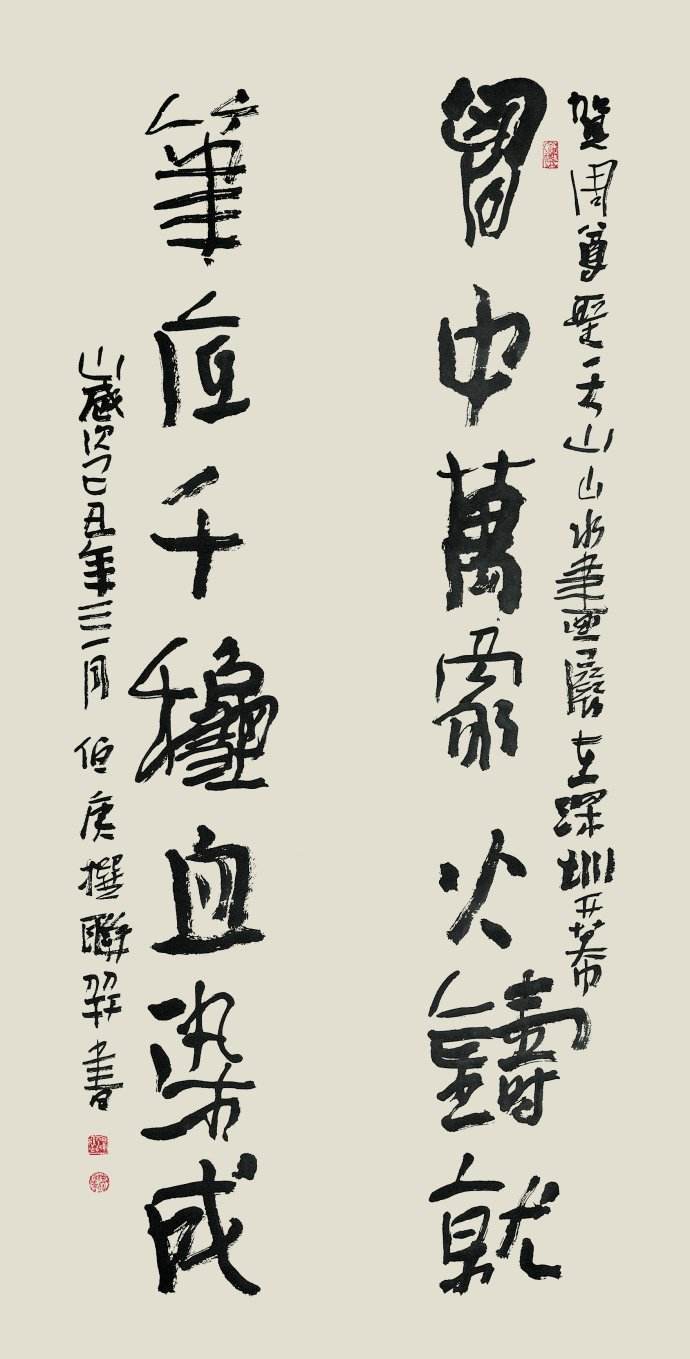 賀周尊聖天山山水畫展在深圳开幕
胷中萬象火鑄就
筆底千穐血染成
歲次己丑年三月 伯庚撰聯并書